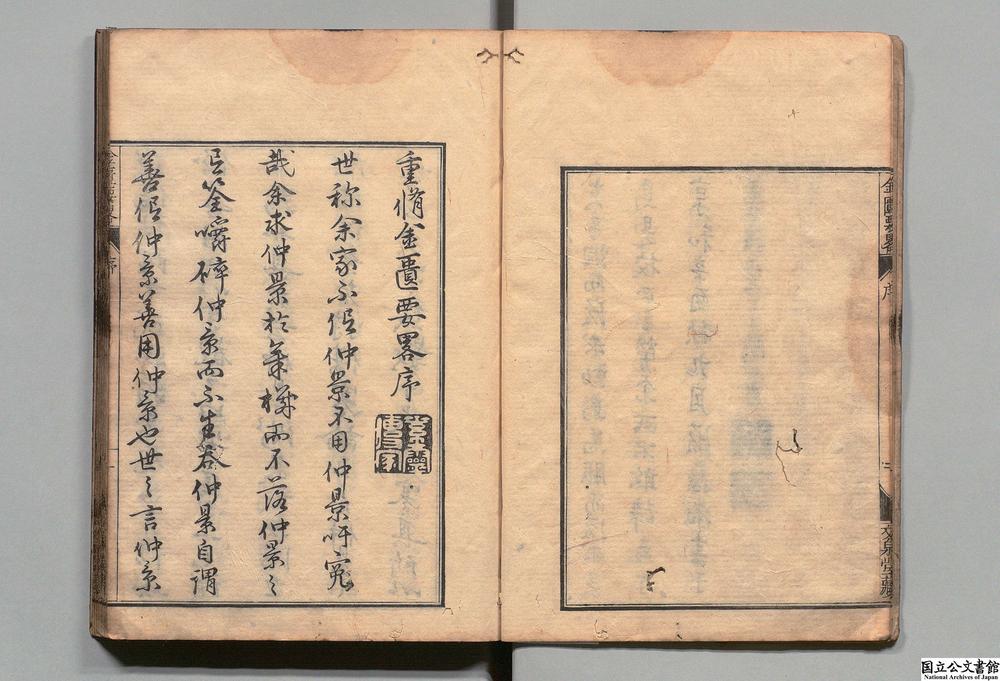 金匱要畧 序
文泉堂藏
重脩金匱要畧序
世称余家不信仲景不用仲景吁寃
哉余求仲景於而不落仲景〻
筌嚼碎仲景而不生吞仲景自謂
善信仲景善用仲景也世〻言仲景
序
国立公文書館
National Archives of Japan